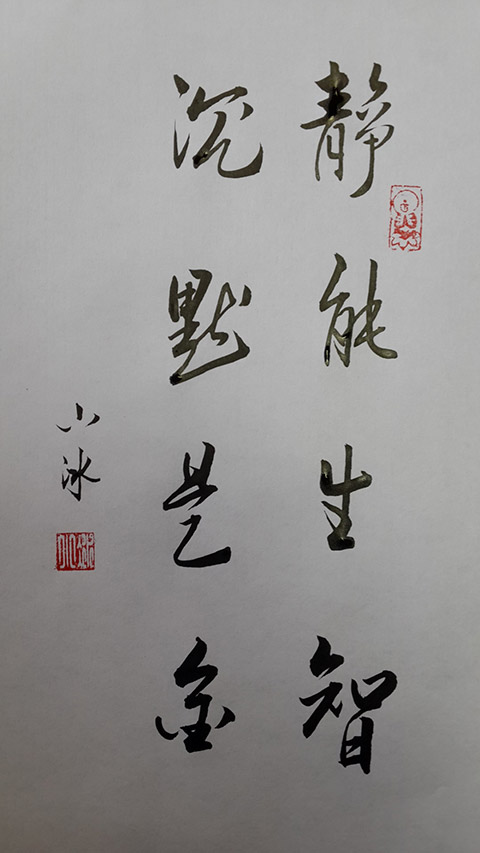 静能生智
沉默是金
小冰
小冰